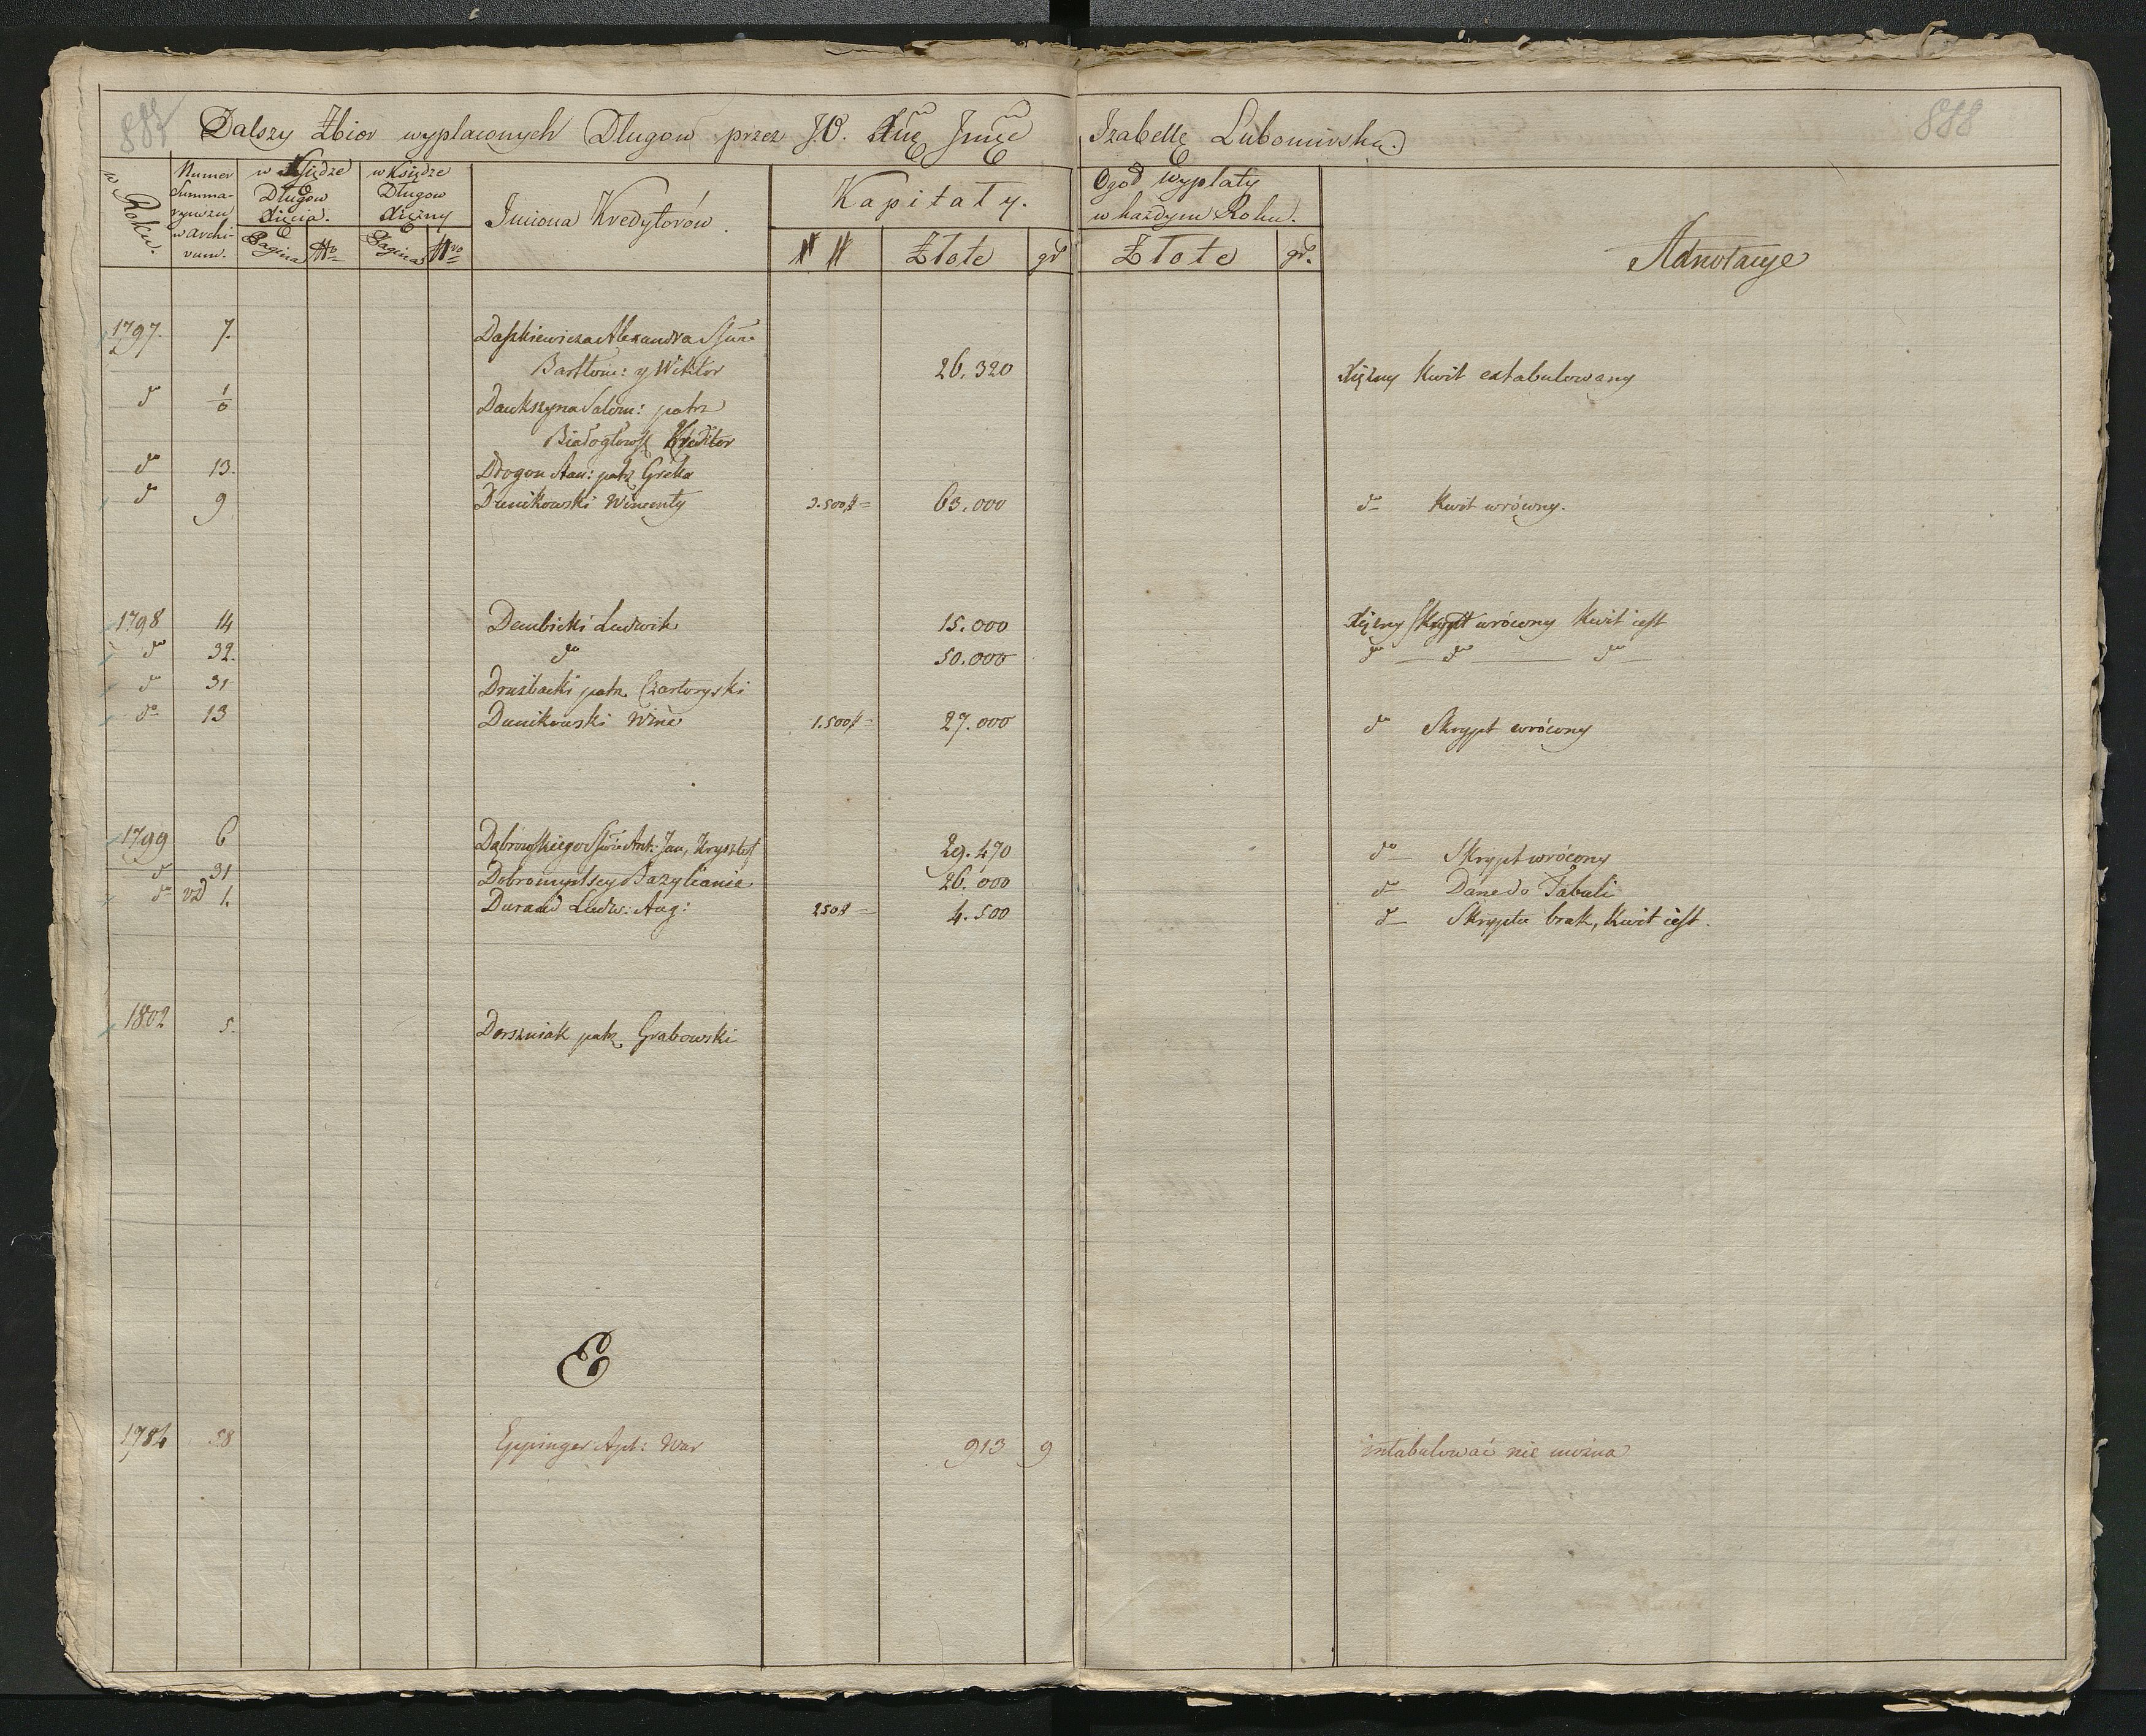 887
888
Dalszy Zbior wypłaconych Długow przez J.O. Xnę Jmę Izabellę Lubomirską.
w Roku.
Numer Summaryuszu w Archivum.
w Xiędze Długow Xięcia.
w Książe Długow Xiężny
Pagina No
Pagina Nro
Imiona Kredytorów.
Kapitały.
# #
Złote
gr
Ogoł Wypłaty w każdym Roku.
Złote
gr.
Adnotacye
1797. 7. Daszkiewicza Alexandra Ssorie
Bartłom: y Wiktor 26.320 Xiężny Kwit extabulowany
do Daukszyna Salom: patrz
Białogłowsk Kreditor
do 13. Drogon Stan: patrz Greka
do 9 Dunikowski Wincenty 3.500# = 63.000 do Kwit wrócony.
1798 14 Dembicki Ludwik 15.000 Xiężny Skrypt wrócony Kwit iest
do 32. do 50.000 do do do
do 31 Drużbacki patrz Czartoryski
do 13 Dunikowski Winc 1.500# = 27.000 do Skrypt wrócony
1799 6 Dąbrowskiego Ssorie Ant: Jan, Krysztof 29.470 do Skrypt wrócony
do 31 Dobromylscy Bazylianie 26.000 do Dane do Tabuli
do vd 1. Durand Ludw: Aug: 250# = 4.500 do Skryptu brak, Kwit iest.
1802 5. Dorszniak patrz Grabowski
E
1784 58 Eppinger Apt: War 913 9 intabulować nie można